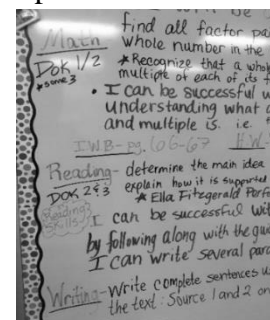 find all factor pa
Math whole number in the
DOK 1/2 * Recognize that a whol
* some 3 multiple of each of its f
• I can be successful w
understanding what a
and multiple is. i.e. f
IWB - pg. 66-67 H.W-
Reading - determine the main idea
DOK 2 & 3 explain how it is supported
* Ella Fitzgerald Perf
Reading Skills I can be successful wit
by following along with the gui
I can write several para
Writing - Write complete sentences u
the text: Source 1 and 2 on